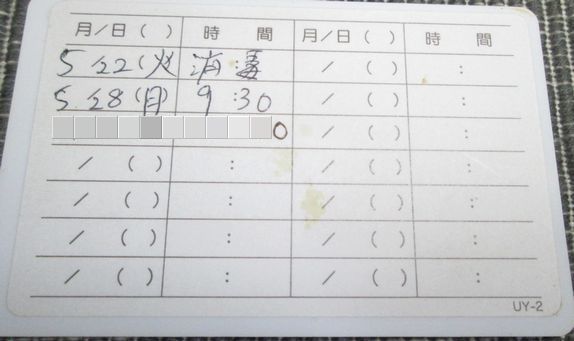 月／日（ ） 時 間 月／日（ ） 時 間
5 22（火 消 毒 ／ （ ） :
5. 28（月） 9 :30 ／ （ ） :
0 ／ （ ） :
／ （ ） : ／ （ ） :
／ （ ） : ／ （ ） :
／ （ ） : ／ （ ） :
／ （ ） : ／ （ ） :
UY-2